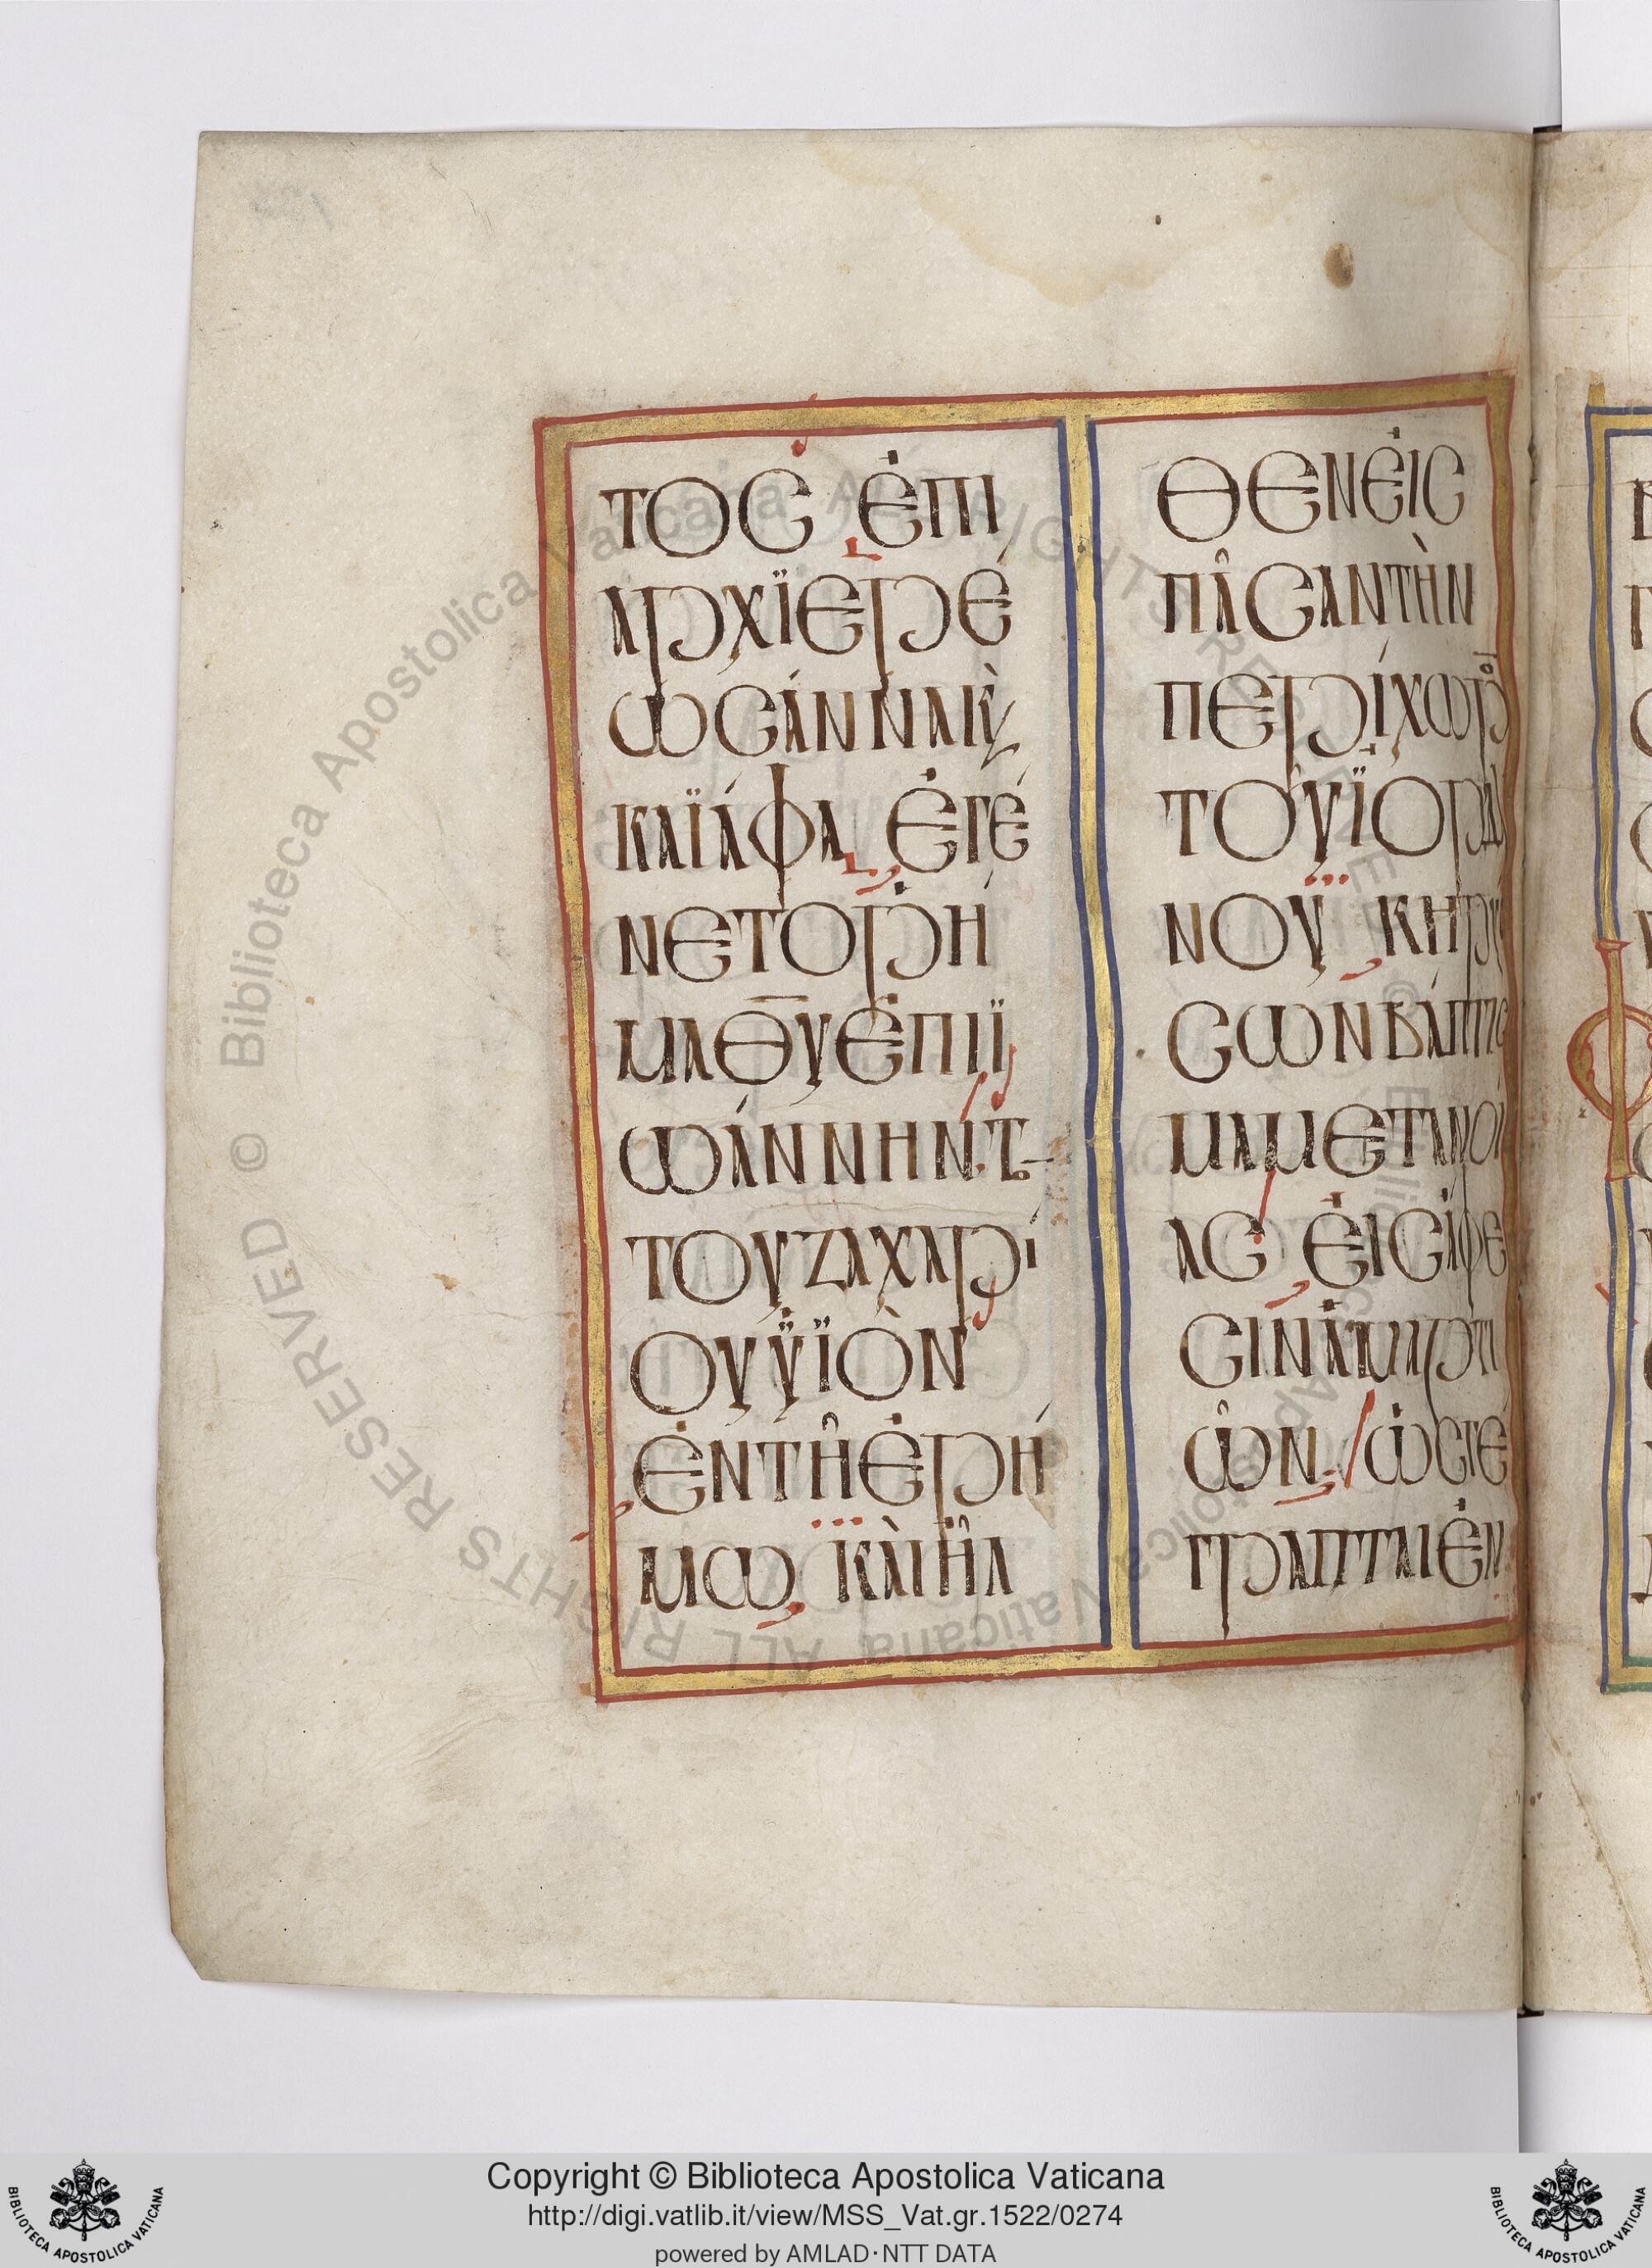 ΤΟΣ ἘΠΙ
ἈΡΧΪΕΡΈ
ΩΣ ἍΝΝΑ Κ̀
ΚΑΪΆΦΑ ἘΓΈ
ΝΕΤΟ ῬΗ͂
ΜΑ Θ̅Υ ἘΠΙ Ϊ
ΩΆΝΝΗΝ Τ
ΤΟΥ ΖΑΧΑΡΊ
ΟΥ ΫΪῸΝ
ἘΝ ΤΗ͂ ἘΡΉ
ΜΩ ΚΑῚ ἮΛ
ΘΕΝ ἘΙΣ
ΠΑ͂ΣΑΝ ΤῊΝ
ΠΕΡΊΧΩΡΟ
ΤΟΥ͂ ἸΟΡΔΆ
ΝΟΥ ΚΗΡΎ
ΣΩΝ ΒΆΠΤΙΣ
ΜΑ ΜΕΤΑΝΟΊ
ΑΣ ἘΙΣ ἌΦΕ
ΣΙΝ ἉΜΑΡΤΙ
Ω͂Ν ὩΣ ΓΈ
ΓΡΑΠΤΑΙ ἘΝ
Biblioteca Apostolica Vaticana ALL RIGHTS RESERVED ©
Copyright © Biblioteca Apostolica Vaticana
http://digi.vatlib.it/view/MSS_Vat.gr.1522/0274
powered by AMLAD·NTT DATA
BIBLIOTECA APOSTOLICA VATICANA
BIBLIOTECA APOSTOLICA VATICANA